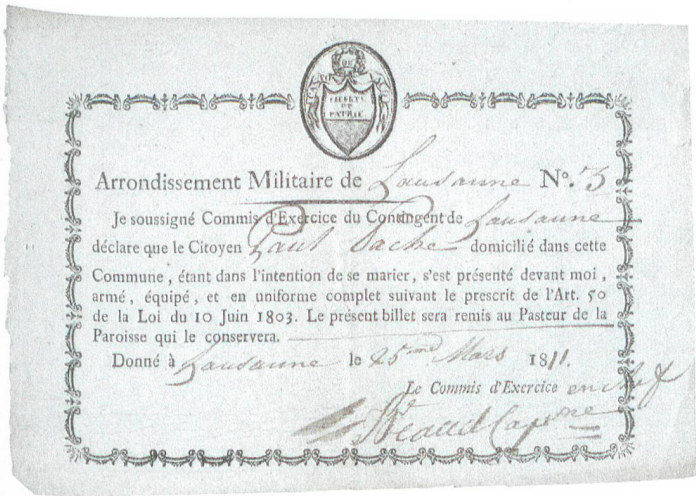 LIBERTÉ
ET
PATRIE
Arrondissement Militaire de Lausanne N.º 3
Je soussigné Commis d'Exercice du Contingent de Lausanne
déclare que le Citoyen Paul Vache domicilié dans cette
Commune, étant dans l'intention de se marier, s'est présenté devant moi,
armé, équipé, et en uniforme complet suivant le prescrit de l'Art. 50
de la Loi du 10 Juin 1803. Le présent billet sera remis au Pasteur de la
Paroisse qui le conservera.
Donné à Lausanne le 25me Mars 1811.
Le Commis d'Exercice en chef